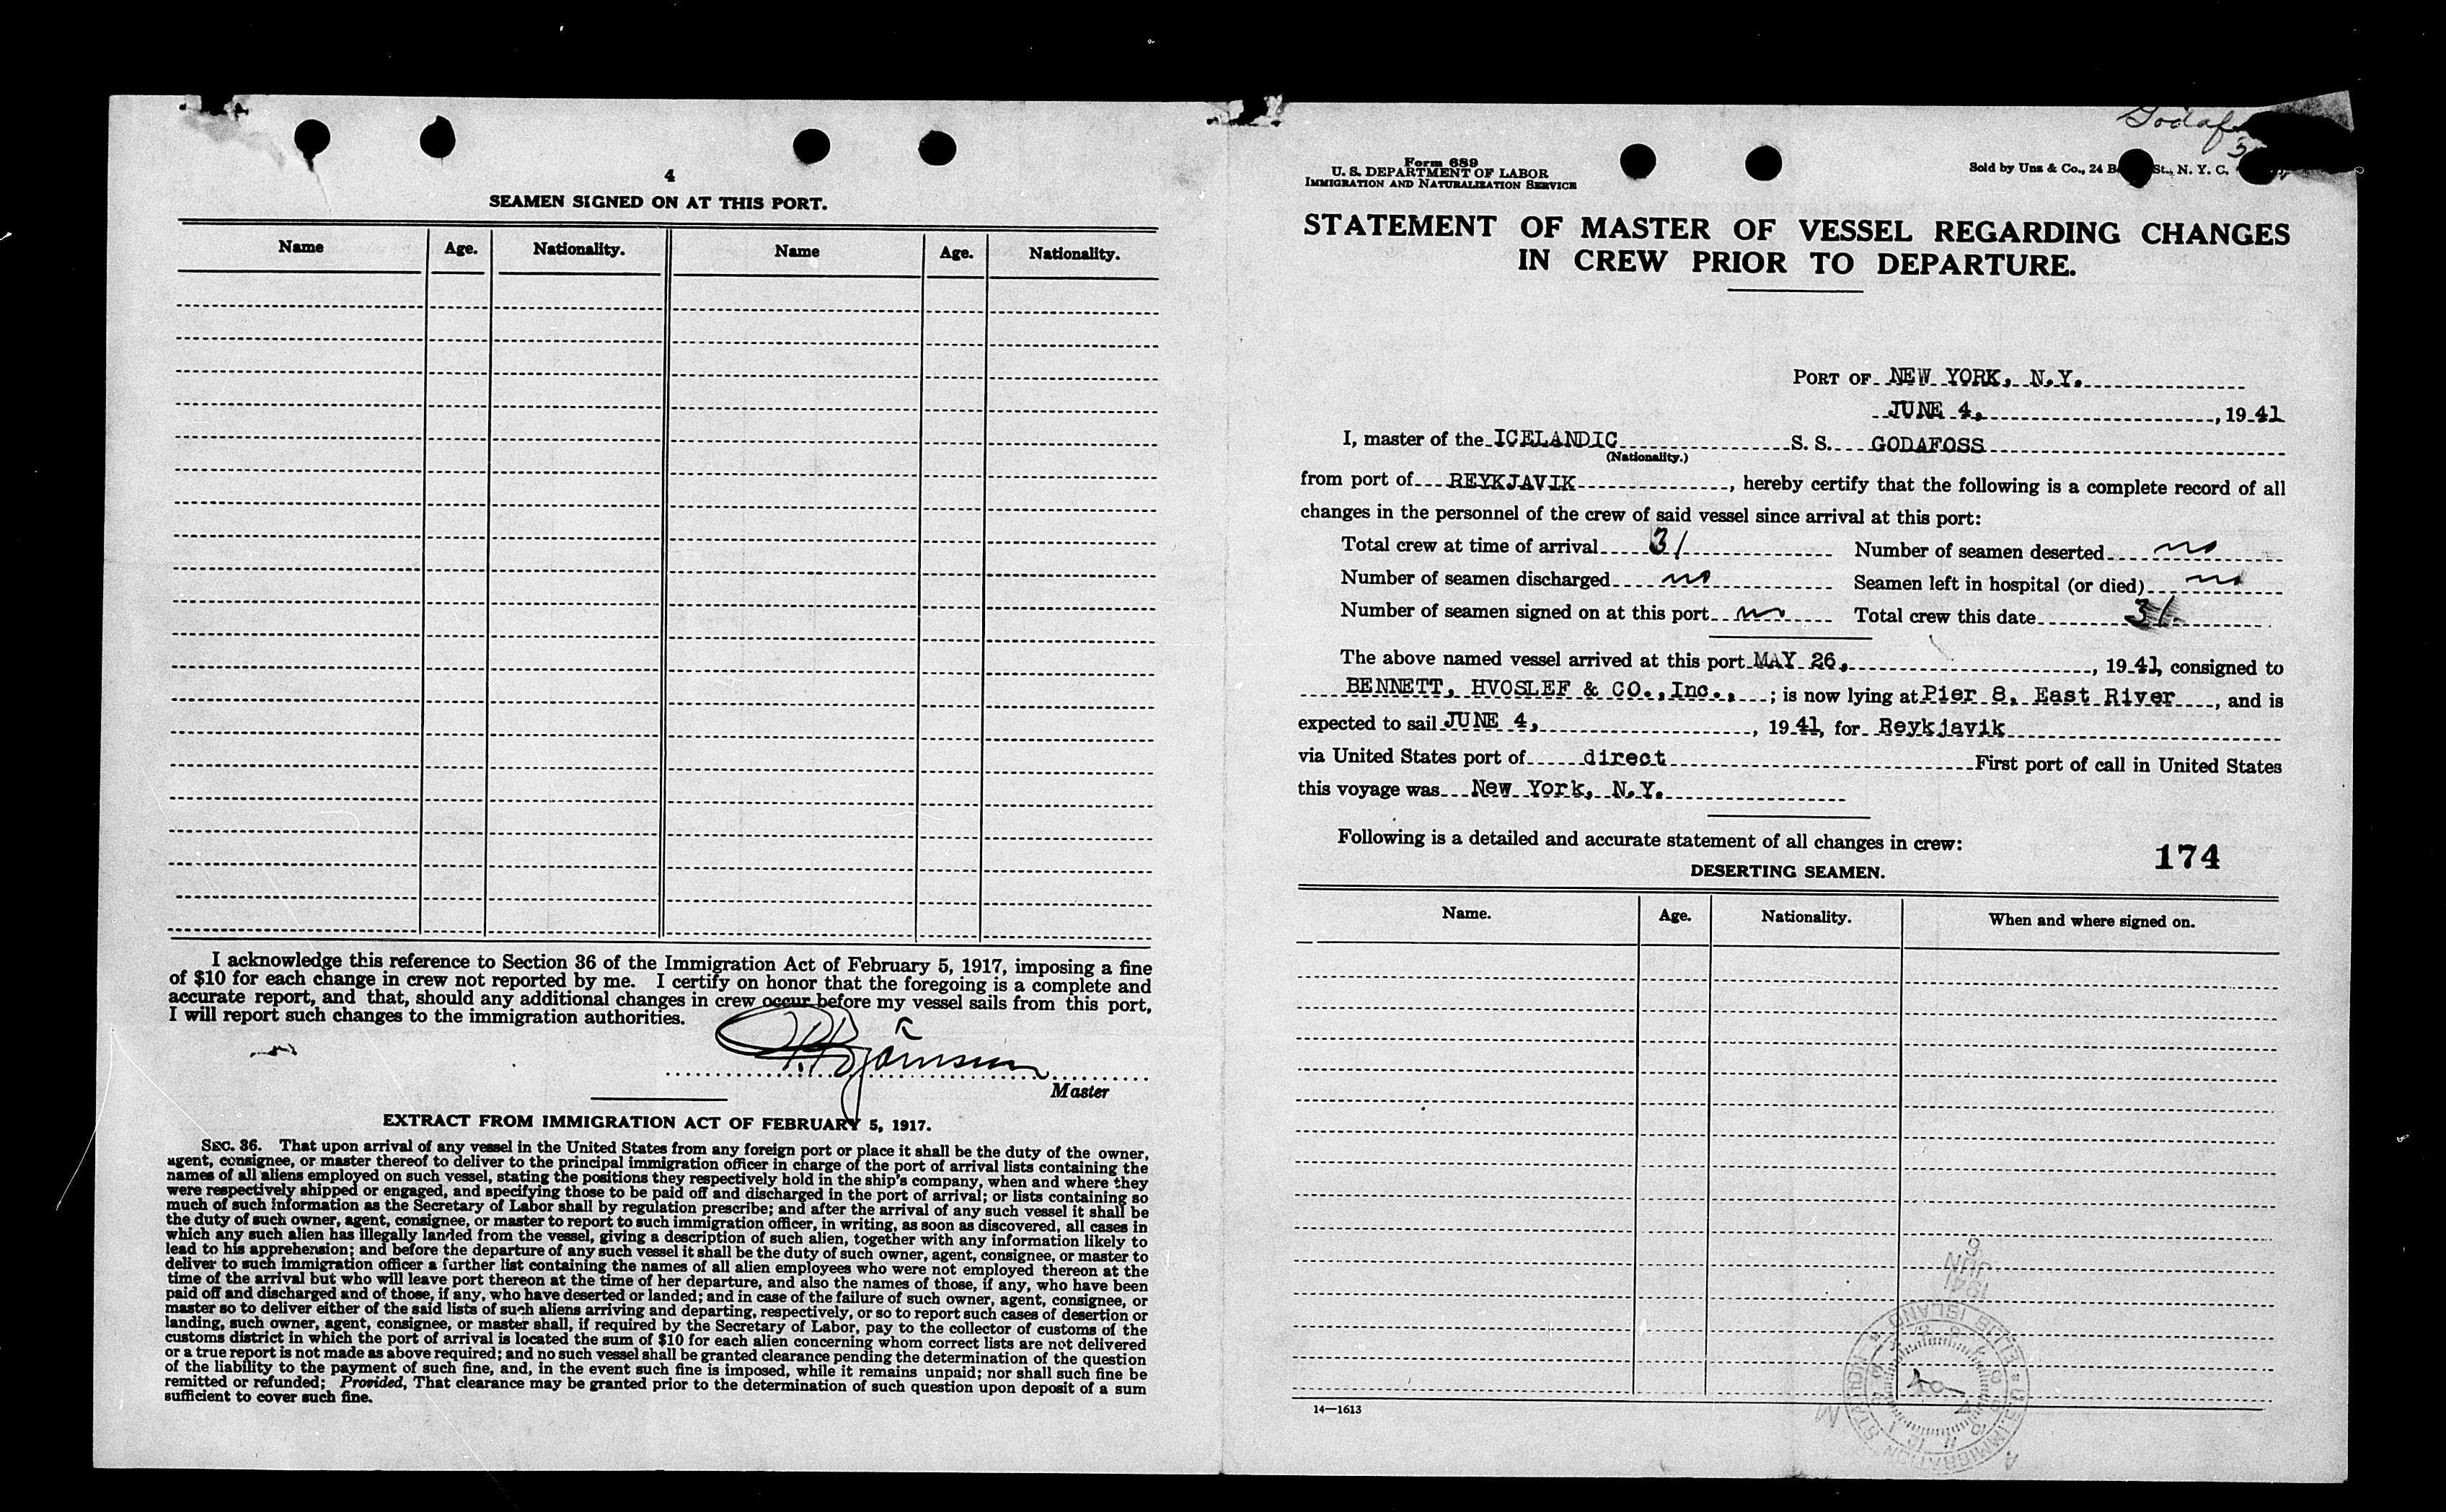 4
SEAMEN SIGNED ON AT THIS PORT.
Name Age. Nationality. Name Age. Nationality.
I acknowledge this reference to Section 36 of the Immigration Act of February 5, 1917, imposing a fine
of $10 for each change in crew not reported by me. I certify on honor that the foregoing is a complete and
accurate report, and that, should any additional changes in crew occur before my vessel sails from this port,
I will report such changes to the immigration authorities.
Master
EXTRACT FROM IMMIGRATION ACT OF FEBRUARY 5, 1917.
SEC. 36. That upon arrival of any vessel in the United States from any foreign port or place it shall be the duty of the owner,
agent, consignee, or master thereof to deliver to the principal immigration officer in charge of the port of arrival lists containing the
names of all aliens employed on such vessel, stating the positions they respectively hold in the ship's company, when and where they
were respectively shipped or engaged, and specifying those to be paid off and discharged in the port of arrival; or lists containing so
much of such information as the Secretary of Labor shall by regulation prescribe; and after the arrival of any such vessel it shall be
the duty of such owner, agent, consignee, or master to report to such immigration officer, in writing, as soon as discovered, all cases in
which any such alien has illegally landed from the vessel, giving a description of such alien, together with any information likely to
lead to his apprehension; and before the departure of any such vessel it shall be the duty of such owner, agent, consignee, or master to
deliver to such immigration officer a further list containing the names of all alien employees who were not employed thereon at the
time of the arrival but who will leave port thereon at the time of her departure, and also the names of those, if any, who have been
paid off and discharged and of those, if any, who have deserted or landed; and in case of the failure of such owner, agent, consignee, or
master so to deliver either of the said lists of such aliens arriving and departing, respectively, or so to report such cases of desertion or
landing, such owner, agent, consignee, or master shall, if required by the Secretary of Labor, pay to the collector of customs of the
customs district in which the port of arrival is located the sum of $10 for each alien concerning whom correct lists are not delivered
or a true report is not made as above required; and no such vessel shall be granted clearance pending the determination of the question
of the liability to the payment of such fine, and, in the event such fine is imposed, while it remains unpaid; nor shall such fine be
remitted or refunded; Provided, That clearance may be granted prior to the determination of such question upon deposit of a sum
sufficient to cover such fine.
Form 689
U. S. DEPARTMENT OF LABOR
IMMIGRATION AND NATURALIZATION SERVICE
Sold by Unz & Co., 24 B St., N. Y. C.
STATEMENT OF MASTER OF VESSEL REGARDING CHANGES
IN CREW PRIOR TO DEPARTURE.
PORT OF NEW YORK, N.Y.
JUNE 4, , 19 41
I, master of the ICELANDIC S. S. GODAFOSS
(Nationality.)
from port of REYKJAVIK , hereby certify that the following is a complete record of all
changes in the personnel of the crew of said vessel since arrival at this port:
Total crew at time of arrival 31 Number of seamen deserted no
Number of seamen discharged no Seamen left in hospital (or died) no
Number of seamen signed on at this port no Total crew this date 31
The above named vessel arrived at this port MAY 26, , 19 41, consigned to
BENNETT, HVOSLEF & CO., Inc., ; is now lying at Pier 8, East River , and is
expected to sail JUNE 4, , 19 41, for Reykjavik
via United States port of direct First port of call in United States
this voyage was New York, N.Y.
Following is a detailed and accurate statement of all changes in crew:
174
DESERTING SEAMEN.
Name. Age. Nationality. When and where signed on.
1941
JUN
U.S. IMMIGRATION STATION ELLIS ISLAND
14—1613